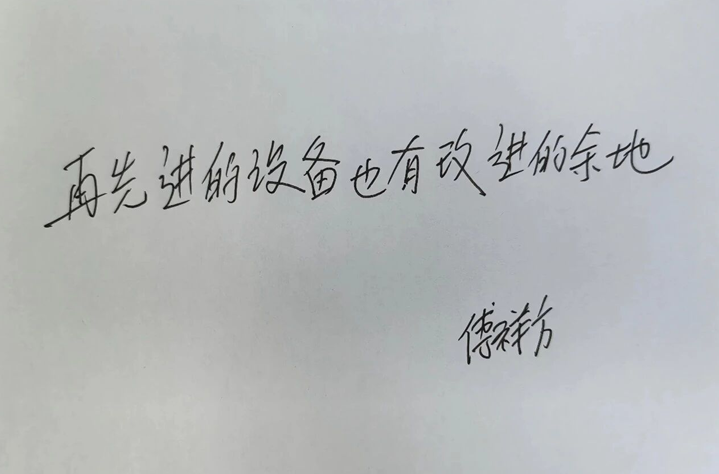 再先进的设备也有改进的余地
傅祥方